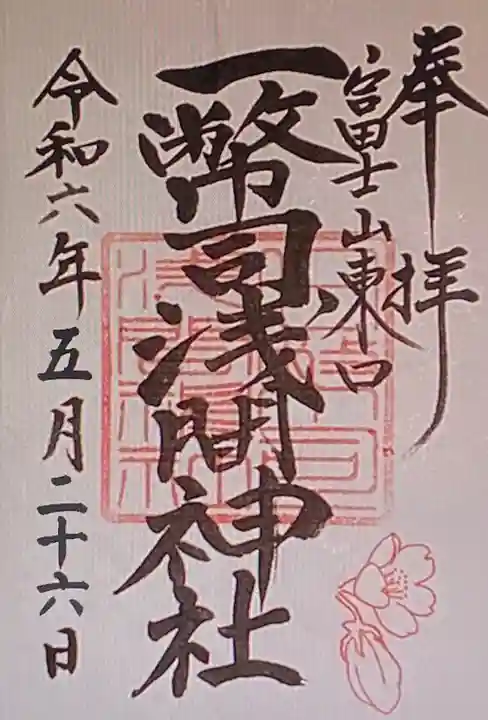 奉拝
富士山東口
一幣司浅間神社
令和六年五月二十六日